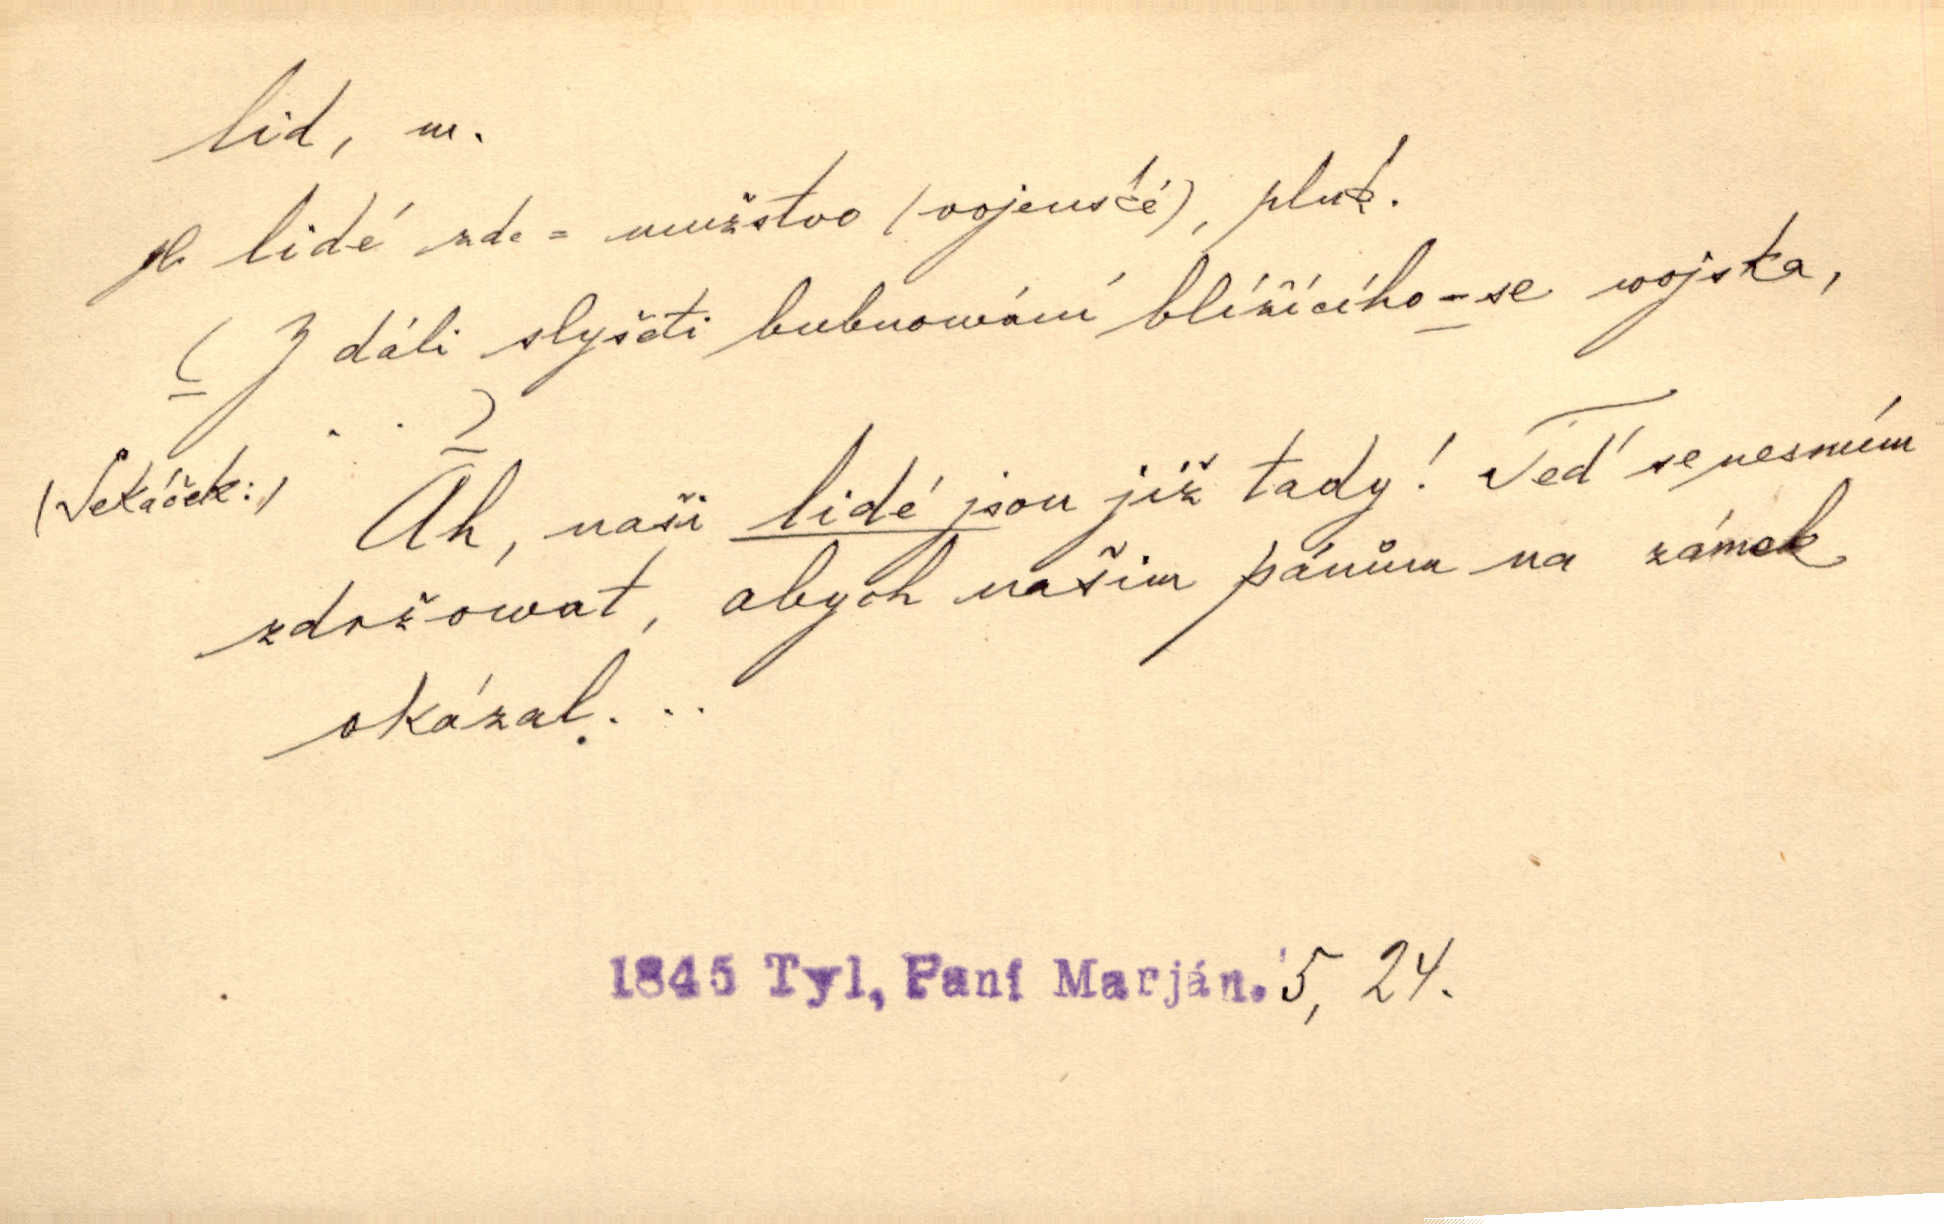 lid, m.
pl. lidé zde = mužstvo (vojenské), pluk.
( Z dáli slyšeti bubnowání bližícího-se wojska,
. . )
(Sekáček:) Ah, naši lidé jsou již tady! Teď se nesmím
zdržowat, abych našim pánům na zámek
okázal. ..
1845 Tyl, Paní Marján. 5, 24.